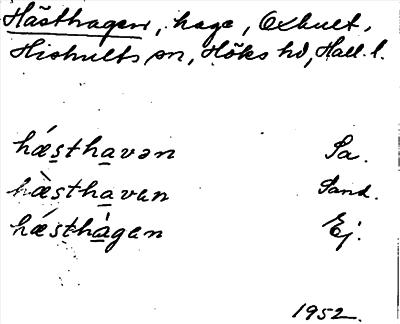 Hästhagen, hage, Oxhult,
Hishults sn, Höks hd, Hall. l.
hǽsthavən Sa.
hæ̀sthavan Sand.
hǽsthàgen Ej.
1952.